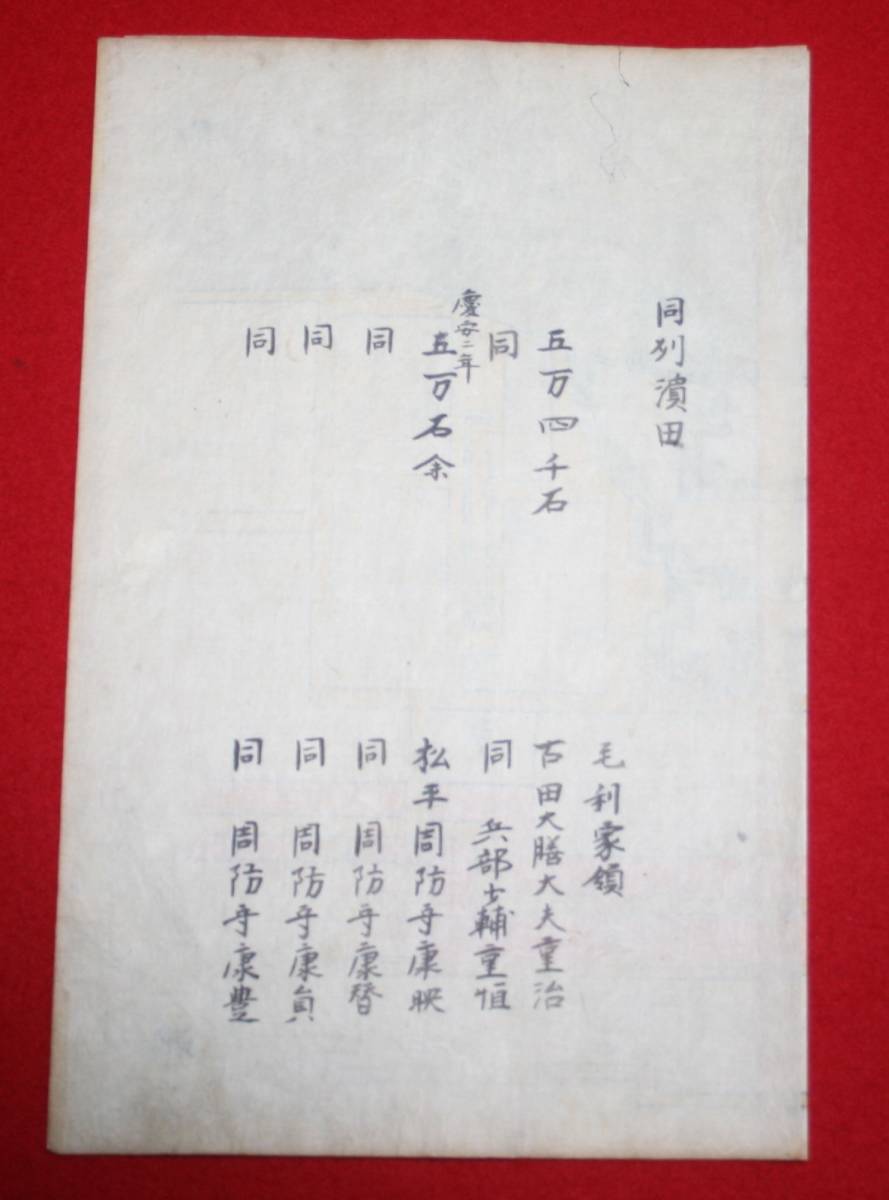 同列濱田
毛利家領
五万四千石 古田大膳大夫重治
同 同 兵部少輔重恒
慶安二年
五万石余 松平周防守康映
同 同 周防守康
同 同 周防守康員
同 同 周防守康豊